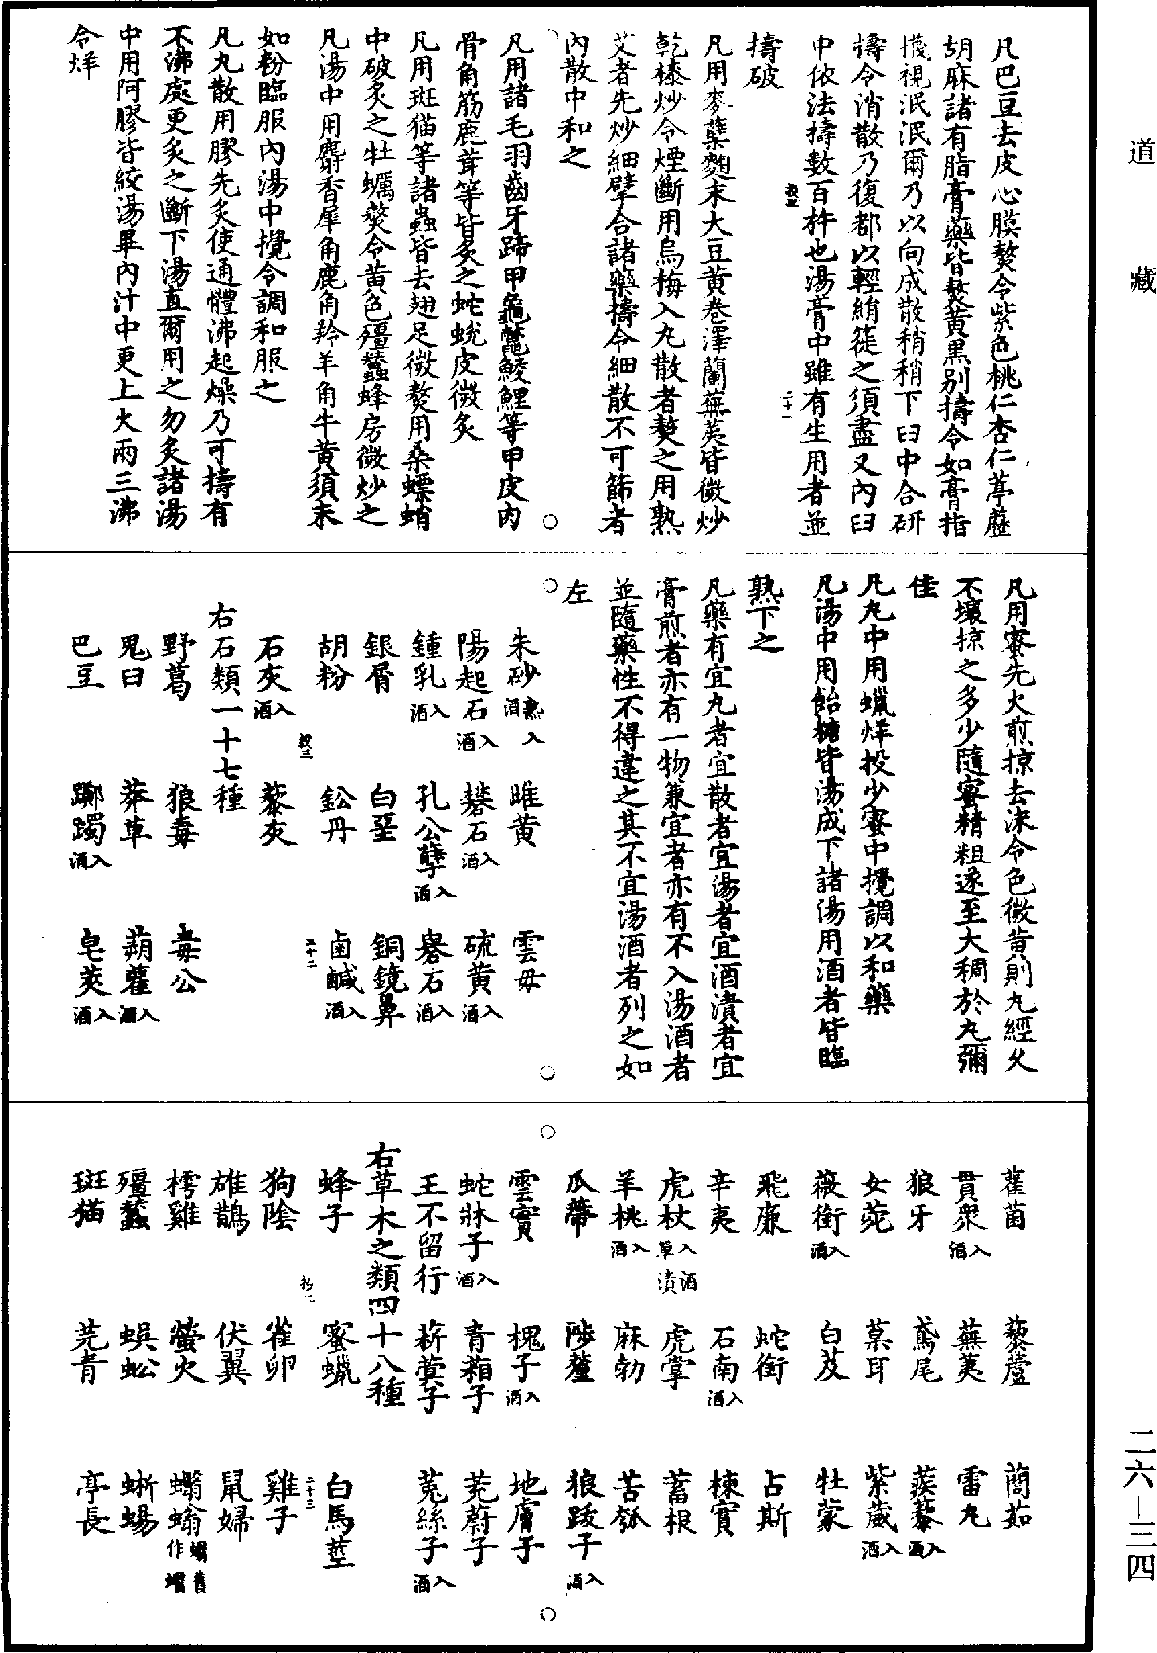 道藏
凡巴豆去皮心膜熬令紫色桃仁杏仁葶藶
胡麻諸有脂膏藥皆熬黄黑別擣令如膏指
㩢視泯泯爾乃以向成散稍稍下臼中合研
擣令消散乃復都以輕絹篵之須盡又内臼
中依法擣數百杵也湯膏中雖有生用者並
擣破
凡用麥蘖麴末大豆黄卷澤蘭蕪荑皆微炒
乾榛炒令煙斷用烏梅入丸散者熬之用熟
艾者先炒細擘合諸藥擣令細散不可篩者
内散中和之
凡用諸毛羽齒牙蹄甲龜鼈鯪鯉等甲皮肉
骨角筋鹿茸等皆炙之蛇蛻皮微炙
凡用斑猫等諸蟲皆去翅足微熬用桑螵蛸
中破炙之牡蠣熬令黄色殭蠶蜂房微炒之
凡湯中用麝香犀角鹿角羚羊角牛黄須末
如粉臨服内湯中攪令調和服之
凡丸散用膠先炙使通體沸起燥乃可擣有
不沸處更炙之斷下湯直爾用之勿炙諸湯
中用阿膠皆絞湯畢内汁中更上火兩三沸
令烊
凡用蜜先火煎掠去沫令色微黄則丸經久
不壞掠之多少隨蜜精粗遂至大稠於丸彌
佳
凡丸中用蠟烊投少蜜中攪調以和藥
凡湯中用飴糖皆湯成下諸湯用酒者皆臨
熟下之
凡藥有宜丸者宜散者宜湯者宜酒漬者宜
膏煎者亦有一物兼宜者亦有不入湯酒者
並隨藥性不得違之其不宜湯酒者列之如
左
朱砂熟入酒 雌黄 雲母
陽起石入酒 礬石入酒 硫黄入酒
鍾乳入酒 孔公孽入酒 礜石入酒
銀屑 白堊 銅鏡鼻
胡粉 鈆丹 鹵鹹入酒
石灰入酒 藜灰
右石類一十七種
野葛 狼毒 毒公
鬼臼 莽草 蒴藋入酒
巴豆 躑躅入酒 皂莢入酒
雚菌 藜蘆 䕡茹
貫衆入酒 蕪荑 雷丸
狼牙 鳶尾 蒺藜入酒
女菀 菒耳 紫葳入酒
薇銜入酒 白芨 牡蒙
飛廉 蛇銜 占斯
辛夷 石南入酒 楝實
虎杖入酒草漬 虎掌 蓄根
羊桃入酒 麻勃 苦瓠
瓜蔕 陟釐 狼跋子入酒
雲實 槐子入酒 地膚子
蛇牀子入酒 青葙子 茺蔚子
王不留行 菥蓂子 菟絲子入酒
右草木之類四十八種
蜂子 蜜蠟 白馬莖
狗陰 雀卵 雞子
雄鵲 伏翼 鼠婦
樗雞 螢火 蠮螉蠮舊作蠮
殭蠶 蜈蚣 蜥蜴
斑猫 芫青 亭長
二六—三四